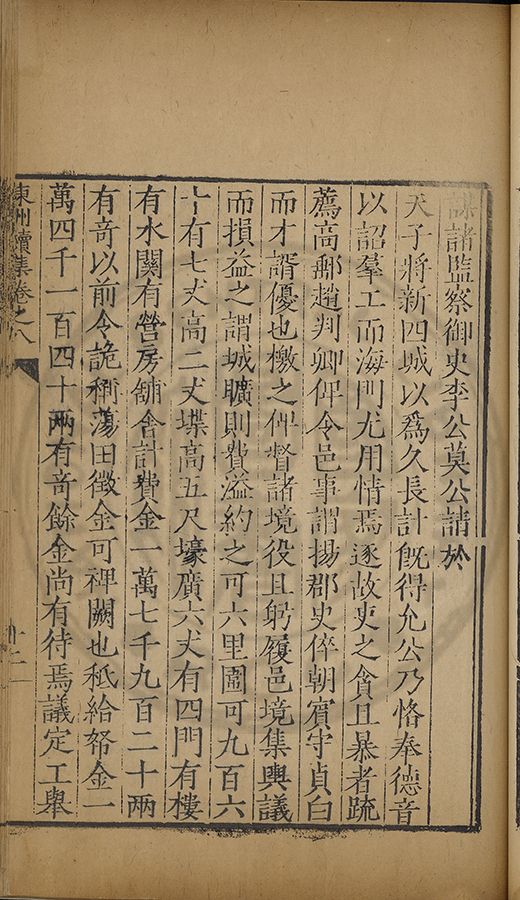 謀諸監察御史李公莫公請於
天子將新四城以爲久長計旣得允公乃恪奉德音
以詔羣工而海門尤用情焉逐故吏之貪且暴者疏
薦高郵趙判卿俾令邑事謂揚郡史倅朝賓守貞白
而才諝優也檄之俾督諸境役且躬履邑境集輿議
而損益之謂城曠則費溢約之可六里圍可九百六
十有七丈高二丈堞高五尺壕廣六丈有四門有樓
有水關有營房舖舍計費金一萬七千九百二十兩
有奇以前令詭稱蕩田徵金可裨闕也秪給帑金一
萬四千一百四十兩有奇餘金尚有待焉議定工舉
東州續集卷之八
十二